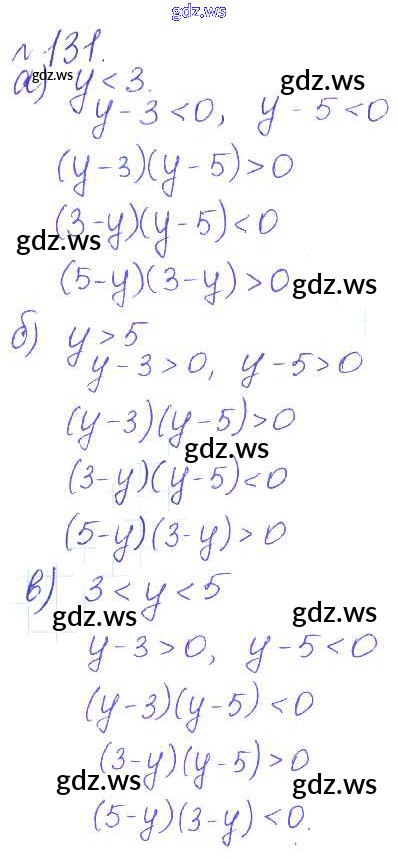 gdz.ws
№ 131.
gdz.ws
а) y < 3.
y - 3 < 0, y - 5 < 0
gdz.ws
(y - 3)(y - 5) > 0
(3 - y)(y - 5) < 0
gdz.ws
(5 - y)(3 - y) > 0
gdz.ws
б) y > 5
y - 3 > 0, y - 5 > 0
(y - 3)(y - 5) > 0
gdz.ws
(3 - y)(y - 5) < 0
(5 - y)(3 - y) > 0
в) 3 < y < 5
gdz.ws gdz.ws
y - 3 > 0, y - 5 < 0
(y - 3)(y - 5) < 0
(3 - y)(y - 5) > 0
gdz.ws gdz.ws
(5 - y)(3 - y) < 0.
gdz.ws